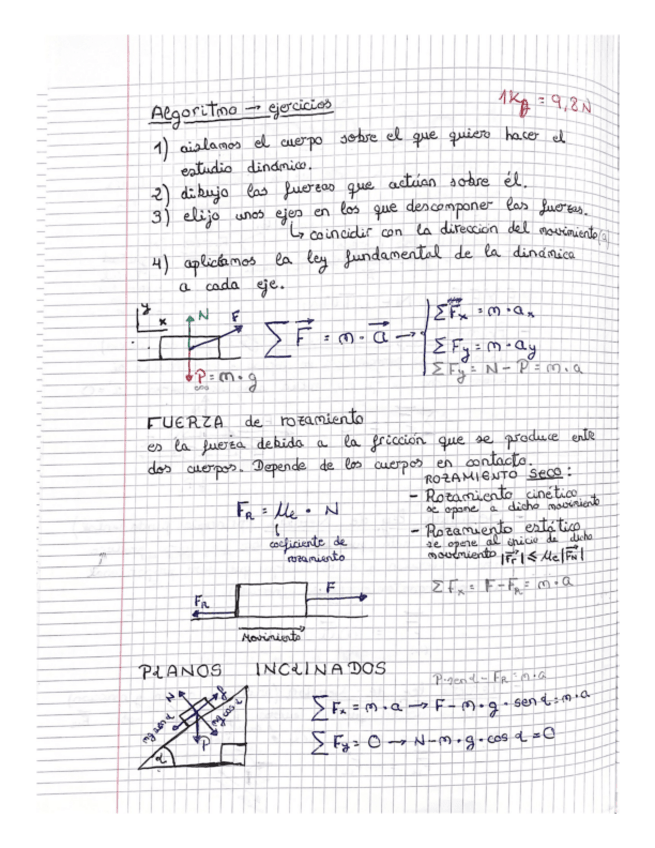 1Kg = 9,8N
Algoritmo → ejercicios
1) aislamos el cuerpo sobre el que quiero hacer el
estudio dinámico.
2) dibujo las fuerzas que actúan sobre él.
3) elijo unos ejes en los que descomponer las fuerzas.
↳ coincidir con la dirección del movimiento
4) aplicamos la ley fundamental de la dinámica
a cada eje.
y
x
N
F
P = m · g
∑ F⃗ = m · a⃗ →
∑ F⃗x = m · ax
∑ Fy = m · ay
∑ Fy = N - P = m . a
FUERZA de rozamiento
es la fuerza debida a la fricción que se produce ente
dos cuerpos. Depende de los cuerpos en contacto.
ROZAMIENTO SECO:
- Rozamiento cinético
se opone a dicho movimiento
- Rozamiento estático
se opone al inicio de dicho
movimiento |F⃗r| ≤ μe|F⃗N|
FR = μe · N
coeficiente de
rozamiento
∑ Fx = F - FR = m . a
FR
F
Movimiento
PLANOS INCLINADOS
P·sen α - FR = m·a
∑ Fx = m · a → F - m · g · sen α = m · a
∑ Fy = 0 → N - m · g · cos α = 0
N
F
mg sen α
mg cos α
P
α